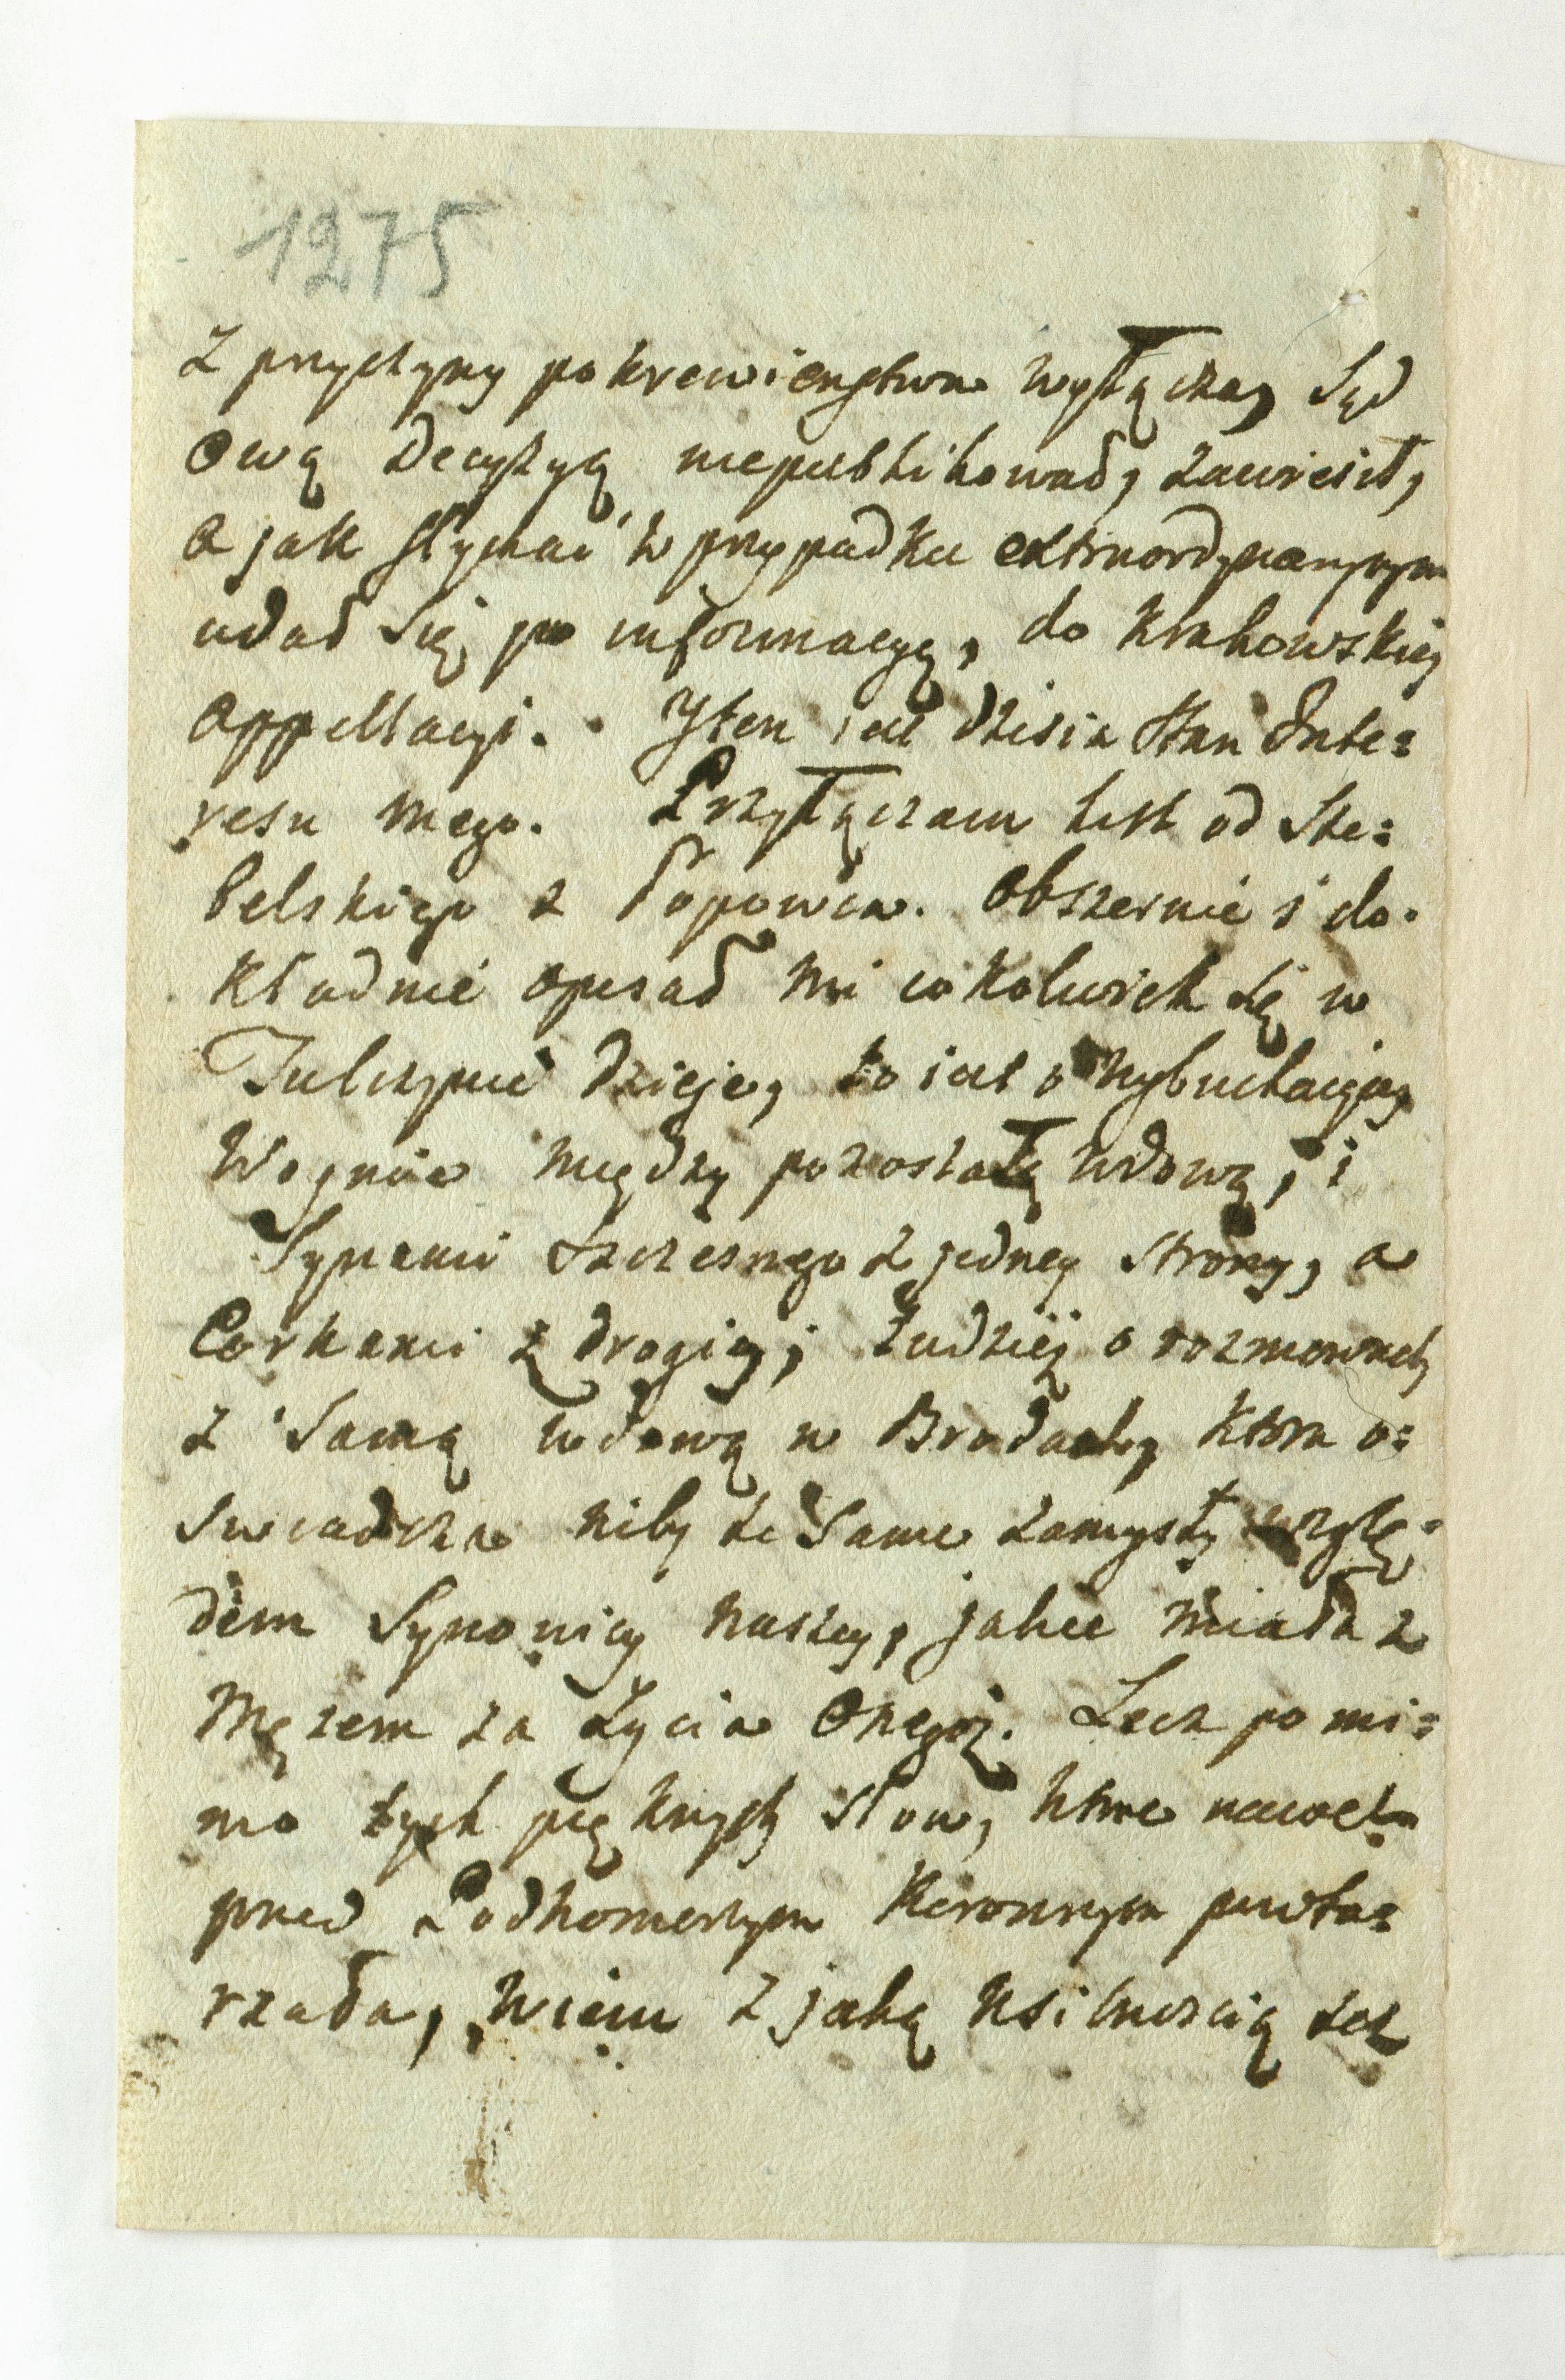 1275
z przyczyny pokrewienstwa wyłącza, Sąd
Ową Decyzyą niepublikował, zawiesił,
a jak słychać w przypadku extraordynaryjnym
udał Się po informacyą, do Krakowskiej
Appellacyi. Jten jest dzisia stan Inte=
resu mego. Przyłączam list od Ste=
belskiego z Popowca. Obszernie i do=
kładnie opisał mi cokolwiek się w
Tulczynie dzieje, to iest o wybuchaiącej
Woynie między pozostałą wdową, i
Synami Szczesnego z jedney strony, a
Corkami z drogiey; tudzież o rozmowach
z Samą wdową w Brodach, ktora o=
swiadcza niby te Same zamysły wzglę=
dem Synowicy naszey, jakie miała z
Mężem za życia Onegoż. Lecz pomi=
mo tych pięknych słow, ktore nawet
przed Podkomorzym Koronnym powta=
rzała, wiem z jaką usilnością też